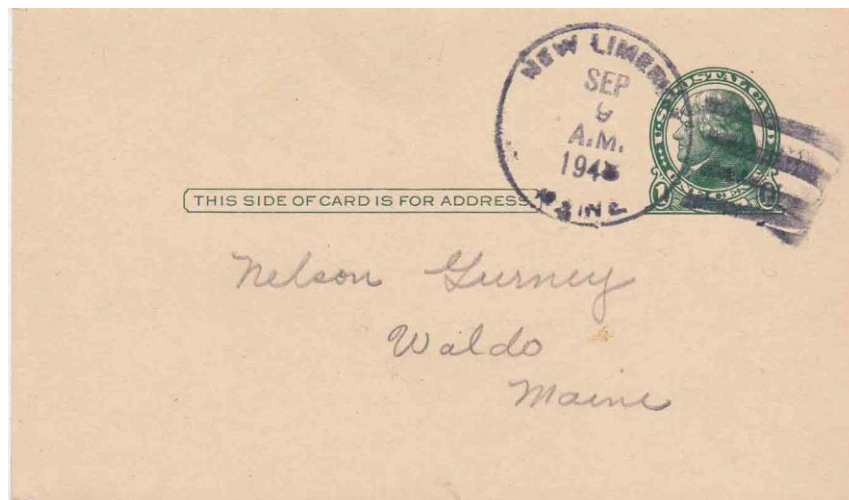 NEW LIMERI
SEP
A.M.
MAINE
U.S. POSTAL CARD
1 ONE CENT 1
THIS SIDE OF CARD IS FOR ADDRESS
Nelson Gurney
Waldo
Maine